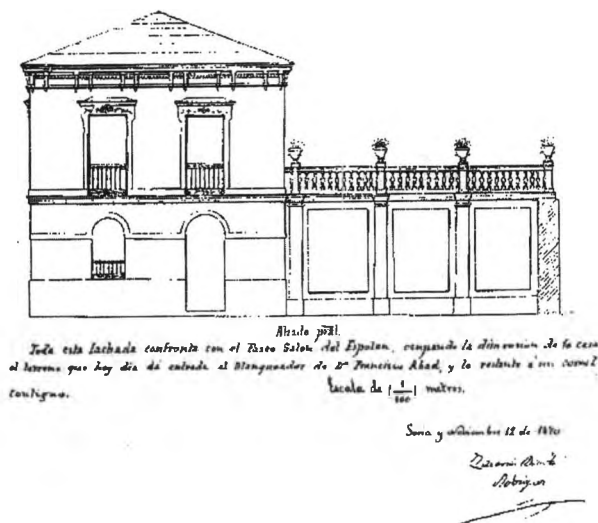 Alzado ppal.
Toda esta fachada confronta con el Paseo Salon del Espolon, ocupando la dimension de la casa
el terreno que hoy dia dá entrada al Blanqueador de Dn Francisco Abad, y lo restante á un corral
contiguo. Escala de (1/100) metros.
Soria y 12 de
Rodriguez